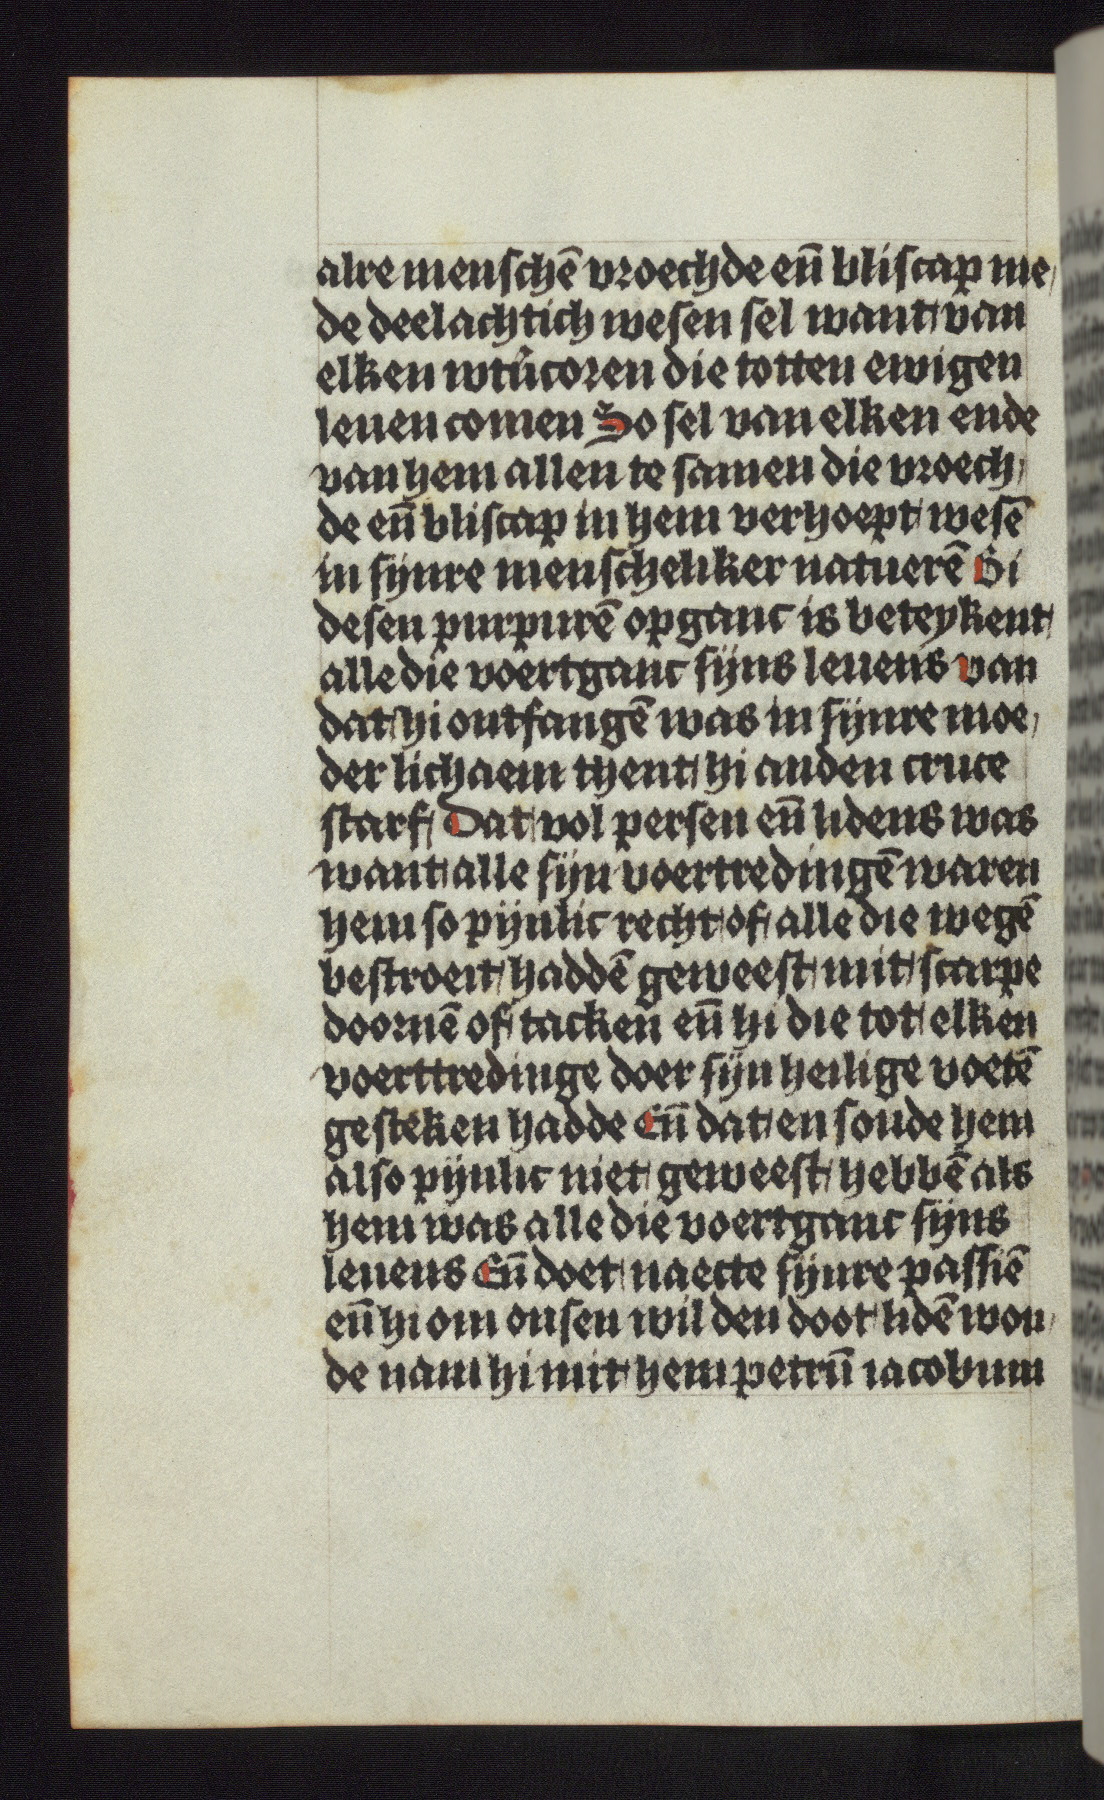 alre menschē vroechde eñ bliscap me,
de deelachtich wesen sel want van
elken wtůcoren die totten ewigen
leuen comen So sel van elken ende
van hem allen te samen die vroech,
de eñ bliscap in hem verhoept wesē
in sijnre menscheliker natuerē Bi
desen purpurē opganc is beteykent
alle die voertganc sijns leuens van
dat hi ontfangē was in sijnre moe,
der lichaem thent hi anden cruce
starf Dat vol persen eñ lidens was
want alle sijn voertredingē waren
hem so pijnlic recht of alle die wegē
bestroeit haddē geweest mit scarpe
doornē of tacken eñ hi die tot elken
voerttredinge doer sijn heilige voetē
gesteken hadde Eñ dat en soude hem
also pijnlic niet geweest hebbē als
hem was alle die voertganc sijns
leuens Eñ doet naecte sijnre passiē
eñ hi om onsen wil den doot lidē wou,
de nam hi mit hem petrū iacobum